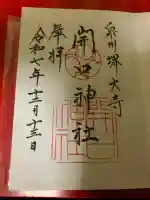 泉州堺大寺
開口神社
奉拝
令和七年十二月十三日